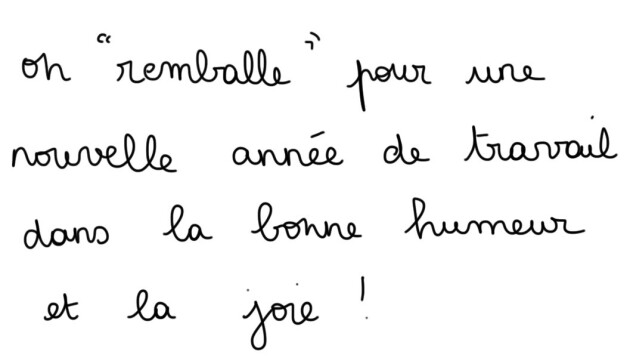 on "remballe" pour une
nouvelle année de travail
dans la bonne humeur
et la joie !